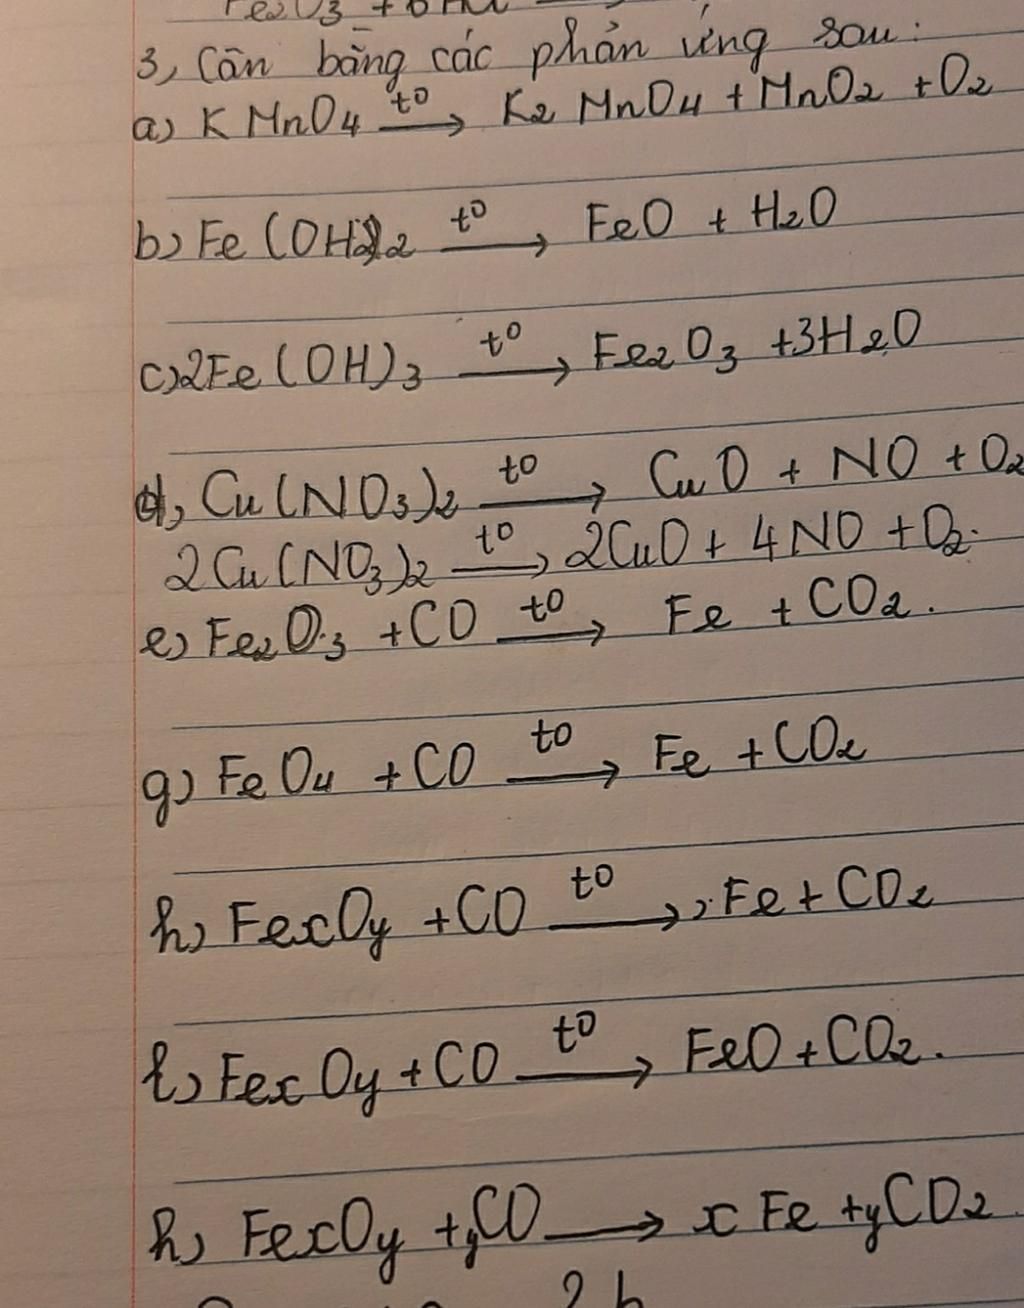 Fe2O3 + 6HCl
3, Cân bằng các phản ứng sau:
a) KMnO4 t0→ K2MnO4 + MnO2 + O2
b) Fe(OH)2 t0→ FeO + H2O
c) 2Fe(OH)3 t0→ Fe2O3 +3H2O
d, Cu(NO3)2 t0→ CuO + NO + O2
2Cu(NO3)2 t0→ 2CuO + 4NO + O2.
e) Fe2O3 + CO t0→ Fe + CO2.
g) FeO4 + CO t0→ Fe + CO2
h, FexOy + CO t0→ Fe + CO2
l, FexOy + CO t0→ FeO + CO2.
h, FexOy + yCO → x Fe + yCO2